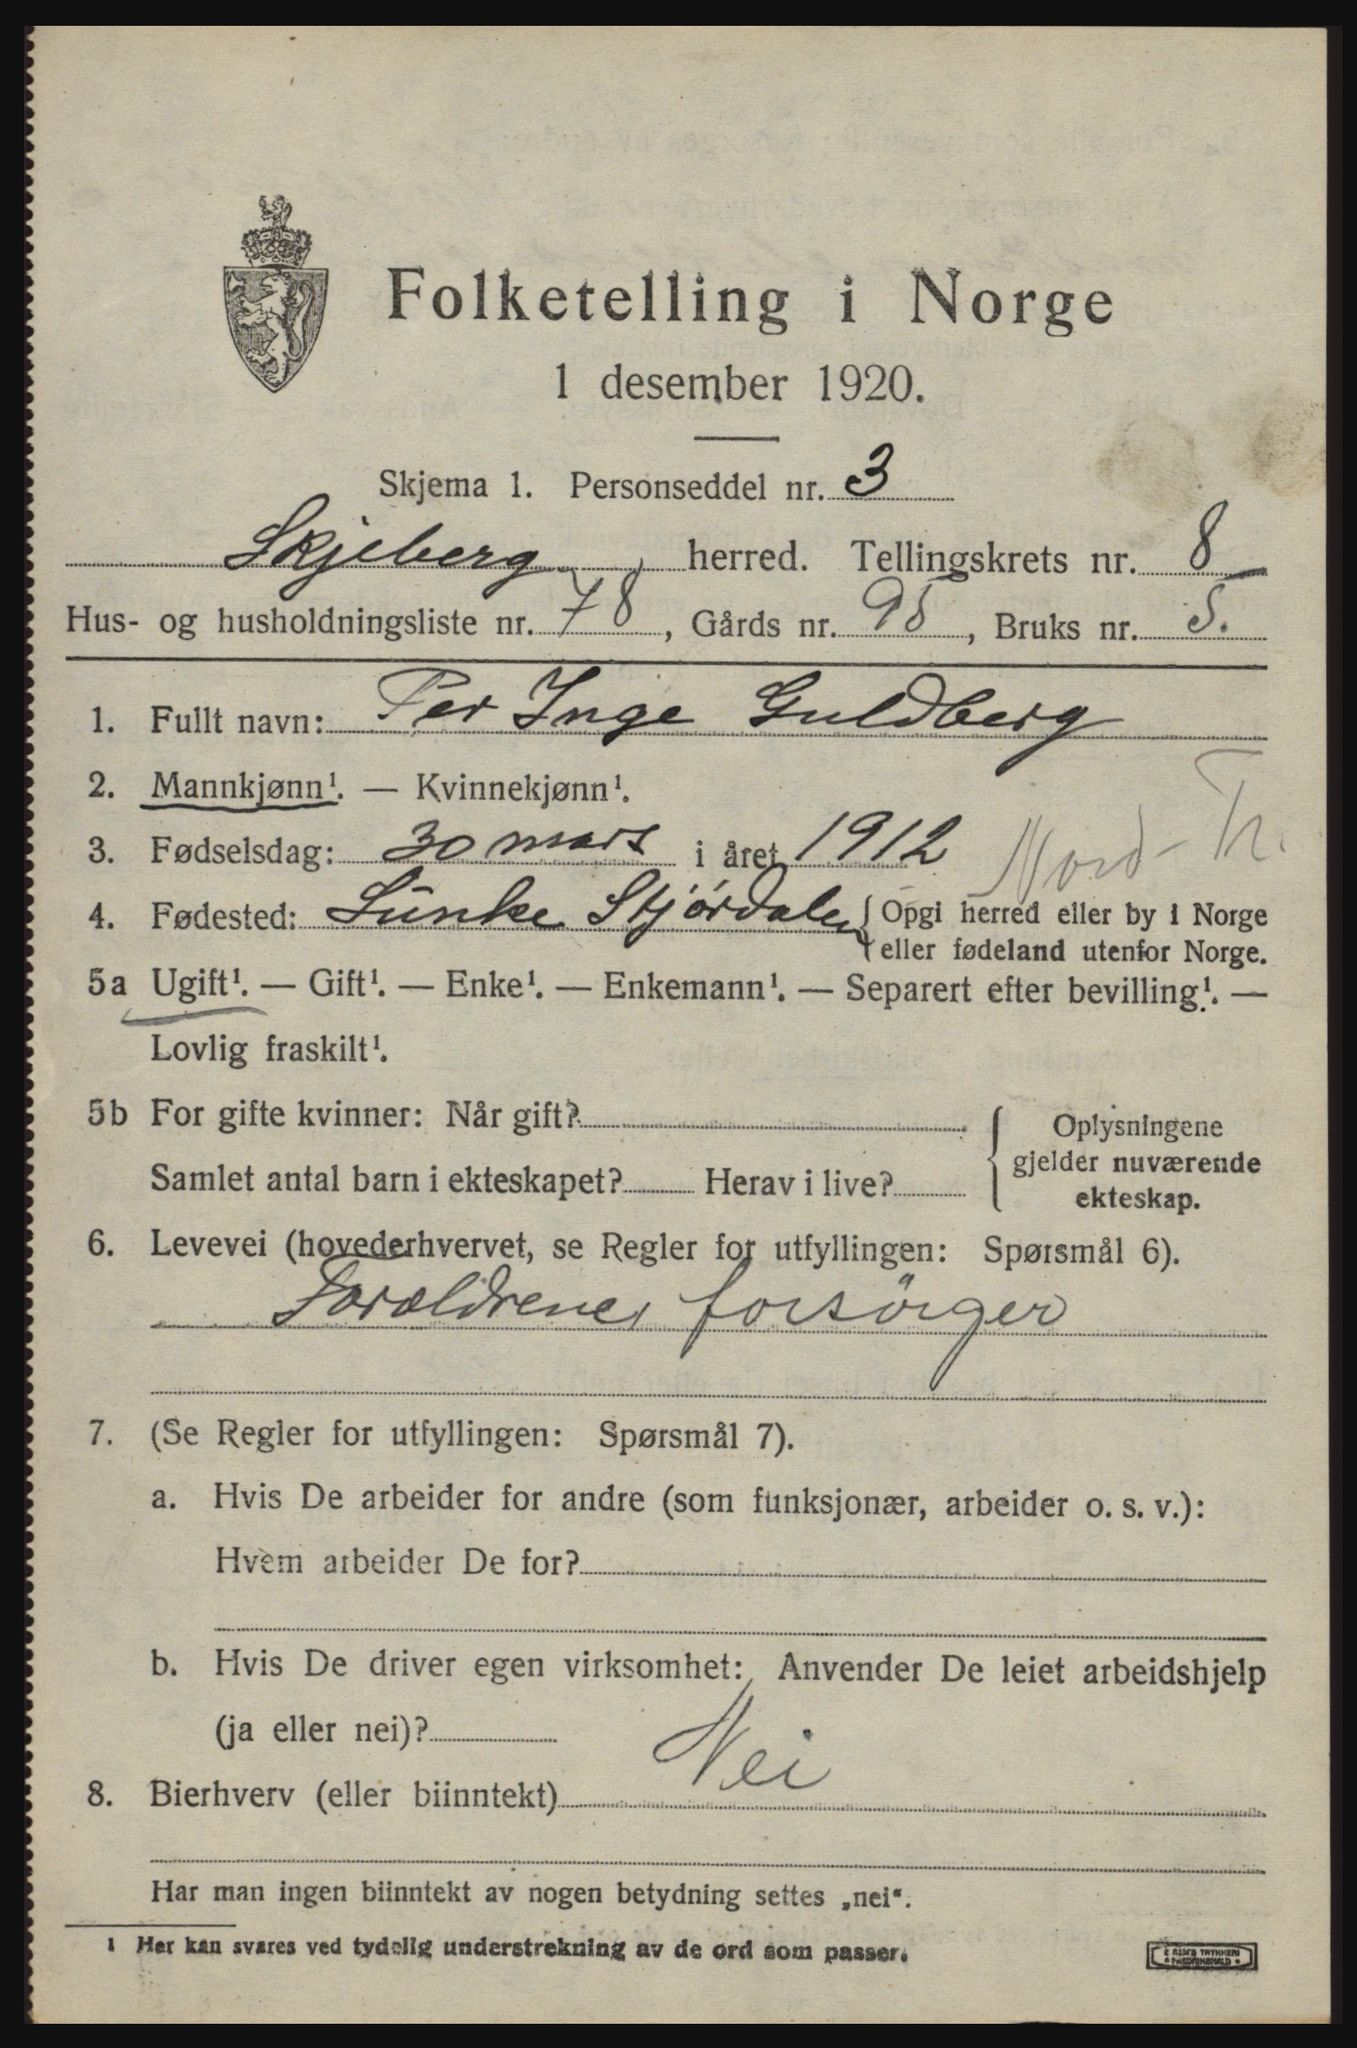 Folketelling i Norge
1 desember 1920.
Skjema 1. Personseddel nr. 3
Skjeberg, herred. Tellingskrets nr. 8
Hus- og husholdningsliste nr. 78, Gårds nr. 95, Bruks nr. 5.
1. Fullt navn: Per Inge Guldberg
2. Mannkjønn¹. — Kvinnekjønn¹.
3. Fødselsdag: 30 mars i året 1912 Nord-Tr.
4. Fødested: Lunke Stjørdalen {Opgi herred eller by i Norge
eller fødeland utenfor Norge.
5a Ugift¹. — Gift¹. — Enke¹. — Enkemann¹. — Separert efter bevilling¹. —
Lovlig fraskilt¹.
5b For gifte kvinner: Når gift?
Samlet antal barn i ekteskapet? Herav i live?
{ Oplysningene
gjelder nuværende
ekteskap.
6. Levevei (hovederhvervet, se Regler for utfyllingen: Spørsmål 6).
Forældrene forsörger
7. (Se Regler for utfyllingen: Spørsmål 7).
a. Hvis De arbeider for andre (som funksjonær, arbeider o. s. v.):
Hvem arbeider De for?
b. Hvis De driver egen virksomhet: Anvender De leiet arbeidshjelp
(ja eller nei)?
8. Bierhverv (eller biinntekt) Nei
Har man ingen biinntekt av nogen betydning settes „nei“.
1 Her kan svares ved tydelig understrekning av de ord som passer.